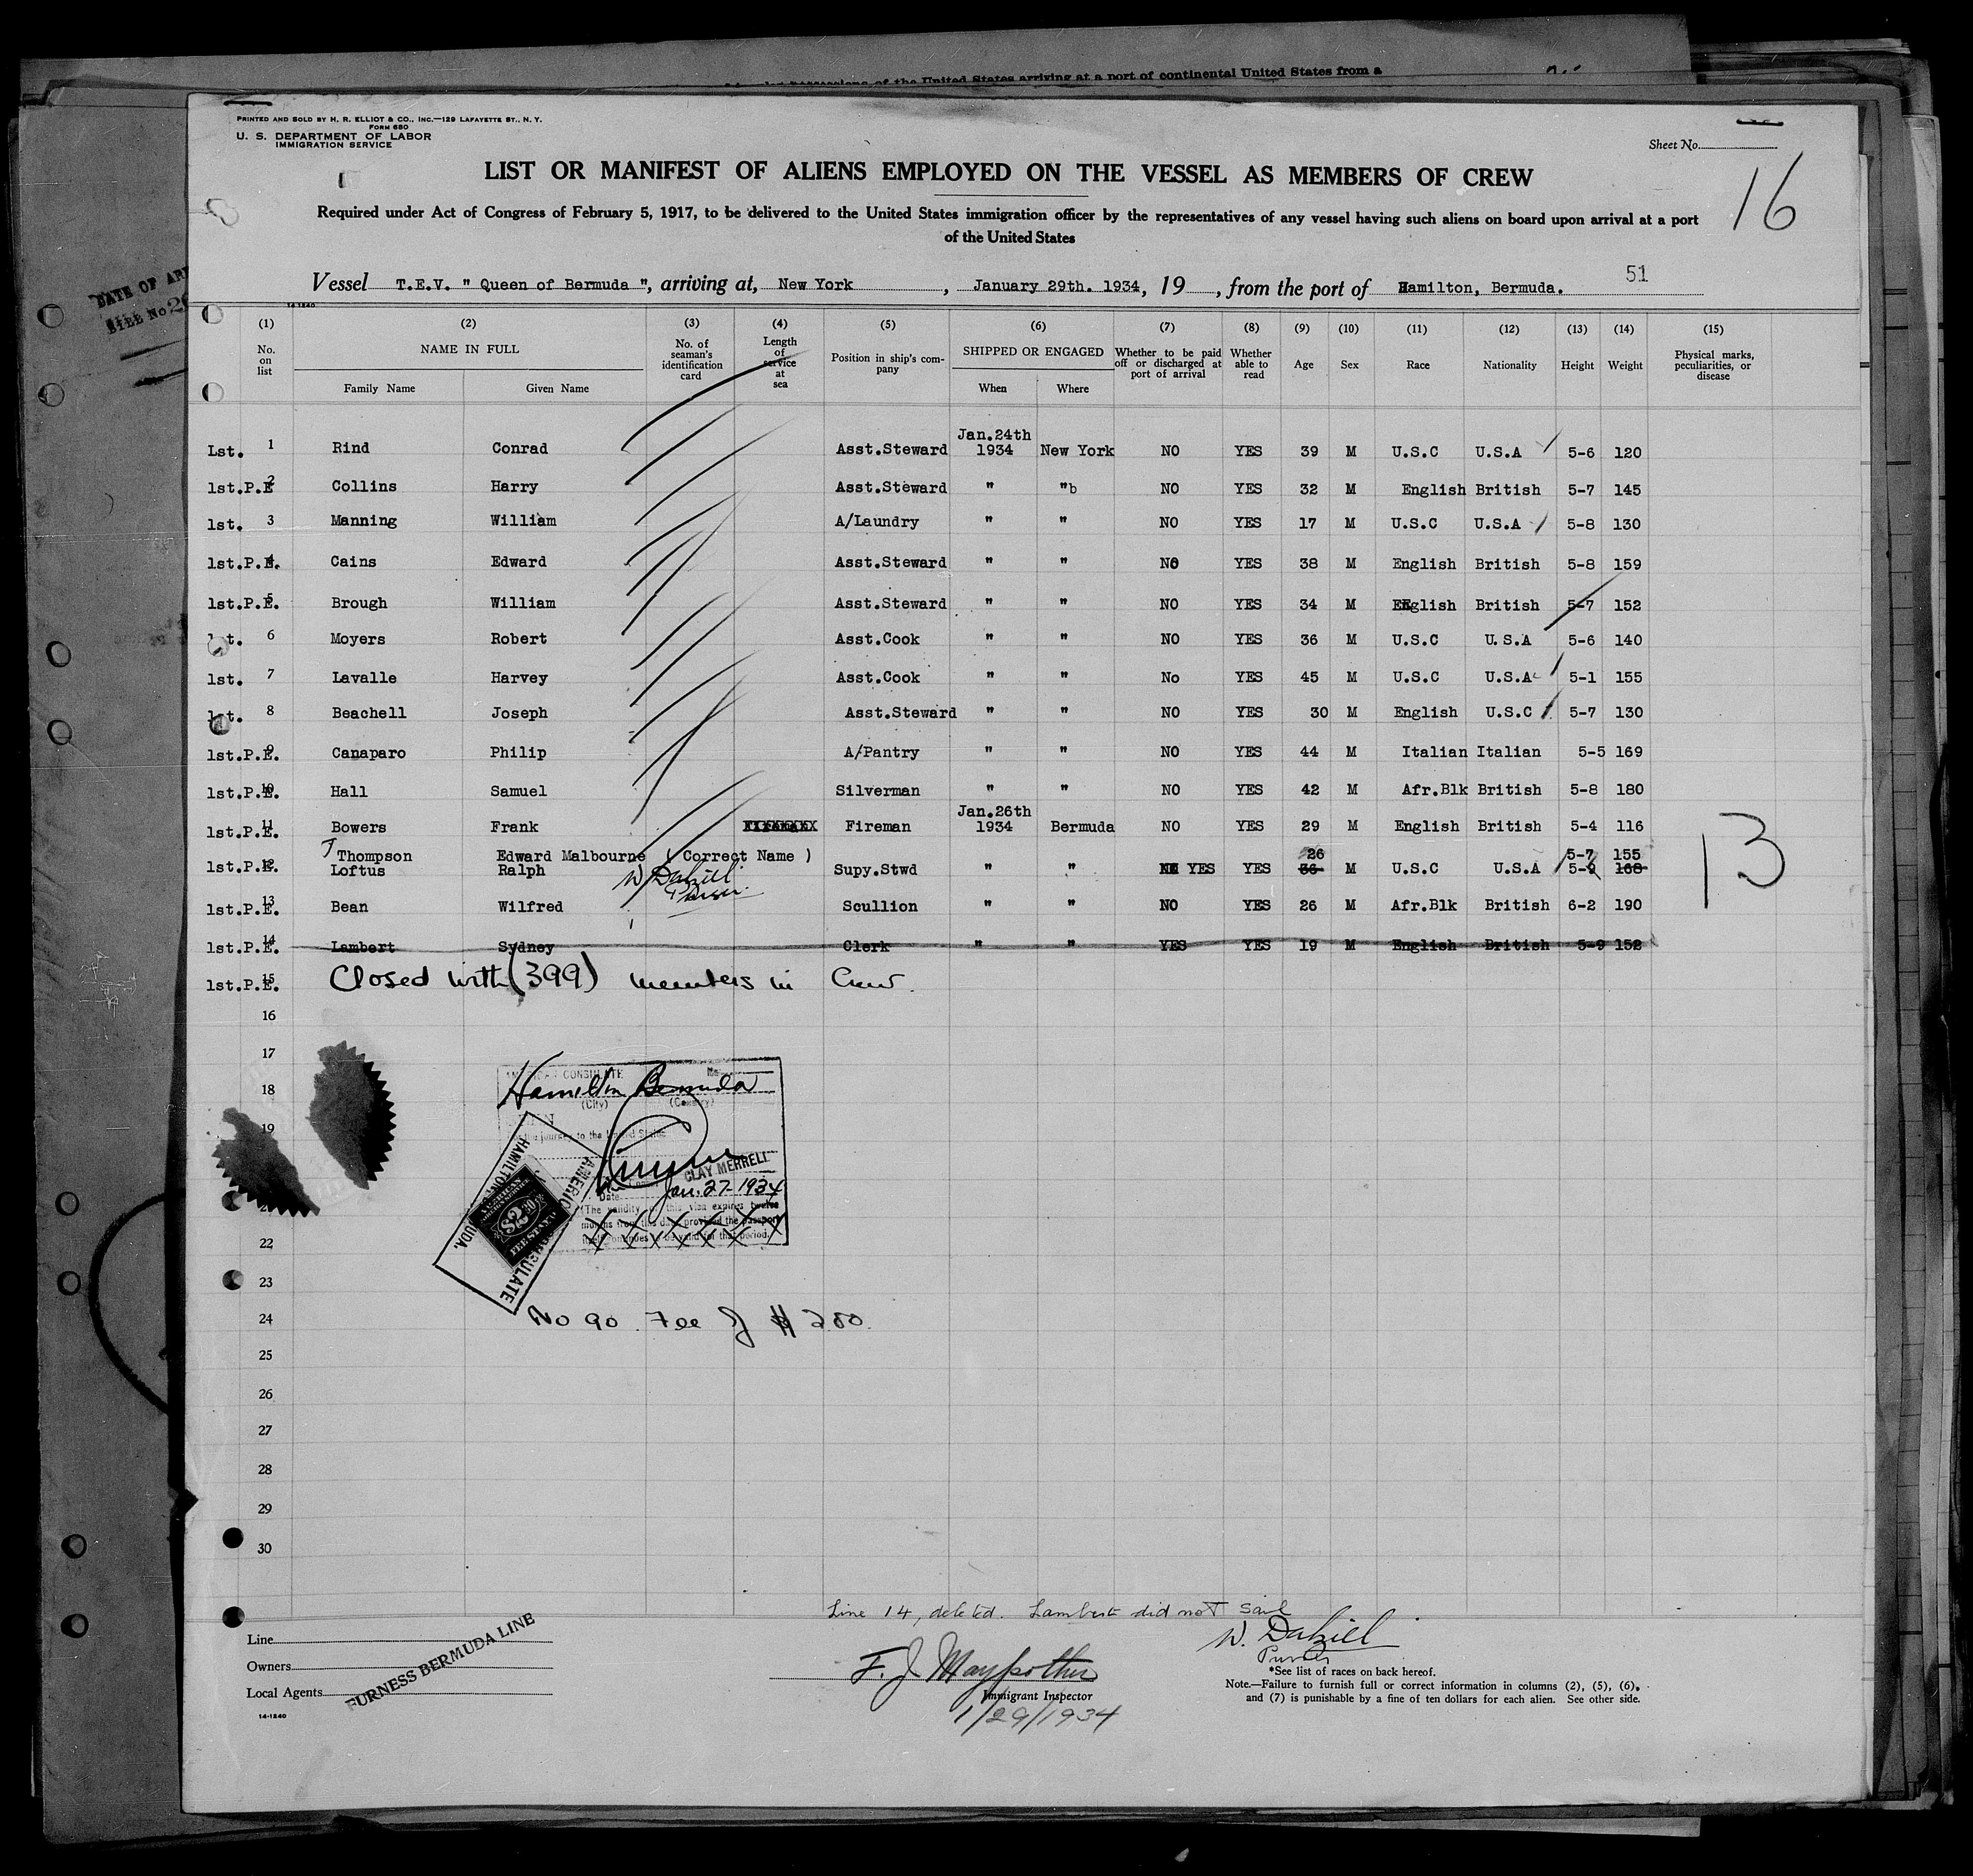 of the United States arriving at a port of continental United States from a
PRINTED AND SOLD BY H. R. ELLIOT & CO., INC.—129 LAFAYETTE ST., N. Y.
FORM 680
U. S. DEPARTMENT OF LABOR
IMMIGRATION SERVICE
Sheet No.
LIST OR MANIFEST OF ALIENS EMPLOYED ON THE VESSEL AS MEMBERS OF CREW
16
Required under Act of Congress of February 5, 1917, to be delivered to the United States immigration officer by the representatives of any vessel having such aliens on board upon arrival at a port
of the United States
51
Vessel T.E.V. " Queen of Bermuda ", arriving at, New York , January 29th. 1934, 19 , from the port of Hamilton, Bermuda.
14-1240
(1) (2) (3) (4) (5) (6) (7) (8) (9) (10) (11) (12) (13) (14) (15)
No. on list NAME IN FULL Family Name Given Name No. of seaman's identification card Length of service at sea Position in ship's company SHIPPED OR ENGAGED When Where Whether to be paid off or discharged at port of arrival Whether able to read Age Sex Race Nationality Height Weight Physical marks, peculiarities, or disease
Lst. 1 Rind Conrad Asst.Steward Jan.24th 1934 New York NO YES 39 M U.S.C U.S.A 5-6 120
1st.P.E 2 Collins Harry Asst.Steward " "b NO YES 32 M English British 5-7 145
1st. 3 Manning William A/Laundry " " NO YES 17 M U.S.C U.S.A 5-8 130
1st.P.E. 4 Cains Edward Asst.Steward " " NO YES 38 M English British 5-8 159
1st.P.E. 5 Brough William Asst.Steward " " NO YES 34 M English British 5-7 152
1st. 6 Moyers Robert Asst.Cook " " NO YES 36 M U.S.C U.S.A 5-6 140
1st. 7 Lavalle Harvey Asst.Cook " " No YES 45 M U.S.C U.S.A 5-1 155
1st. 8 Beachell Joseph Asst.Steward " " NO YES 30 M English U.S.C 5-7 130
1st.P.E. 9 Canaparo Philip A/Pantry " " NO YES 44 M Italian Italian 5-5 169
1st.P.E. 10 Hall Samuel Silverman " " NO YES 42 M Afr.Blk British 5-8 180
1st.P.E. 11 Bowers Frank Fireman Jan.26th 1934 Bermuda NO YES 29 M English British 5-4 116
Thompson Edward Malbourne ( Correct Name ) 26 5-7 155
1st.P.E. 12 Loftus Ralph Supy.Stwd " " NO YES YES 36 M U.S.C U.S.A 5-9 168
W Dalziell
Purser
1st.P.E. 13 Bean Wilfred Scullion " " NO YES 26 M Afr.Blk British 6-2 190
13
1st.P.E. 14 Lambert Sydney Clerk " " YES YES 19 M English British 5-9 152
1st.P.E. 15 Closed with (399) members in Crew.
16
17
18
19
22
23
24
25
26
27
28
29
30
CONSULATE No.
Hamilton Bermuda
(City) (Country)
the journey to the United States
CLAY MERRELL
Date Jan. 27-1934
(The validity of this visa expires twelve
months from this date provided the passport
continues to be valid for that period.)
AMERICAN CONSULATE
HAMILTON, BERMUDA.
$2.00
No 90. Fee of $ 2.00.
Line 14, deleted. Lambert did not sail
W. Dalziell
Purser
Line
Owners
Local Agents
FURNESS BERMUDA LINE
14-1240
F. J. Maypother
Immigrant Inspector
1/29/1934
*See list of races on back hereof.
Note.—Failure to furnish full or correct information in columns (2), (5), (6),
and (7) is punishable by a fine of ten dollars for each alien. See other side.